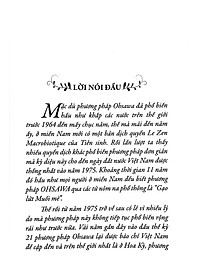 LỜI NÓI ĐẦU
Mặc dù phương pháp Ohsawa đã phổ biến
hầu như khắp các nước trên thế giới
trước 1964 đến mấy chục năm, thế mà mãi đến năm
ấy, ở miền Nam mới có một bản dịch quyển Le Zen
Macrobiotique của Tiên sinh. Rồi lần lượt ta thấy
nhiều quyển dịch khác phổ biến phương pháp đơn giản
mà kỳ diệu này cho đến ngày đất nước Việt Nam được
thống nhất vào năm 1975. Khoảng thời gian 11 năm
đó hầu như mọi người ở miền Nam đều biết phương
pháp OHSAWA qua các từ nôm na phổ thông là "Gạo
lứt Muối mè".
Thế rồi từ năm 1975 trở về sau có lẽ vì nhiều lý
do mà phương pháp này không tiếp tục phổ biến rộng
rãi như trước nữa. Vài năm gần đây vào đầu thế kỷ
21 phương pháp Ohsawa lại được báo chí Việt Nam
đề cập đến vì trên thế giới nhất là ở Hoa Kỳ, phương